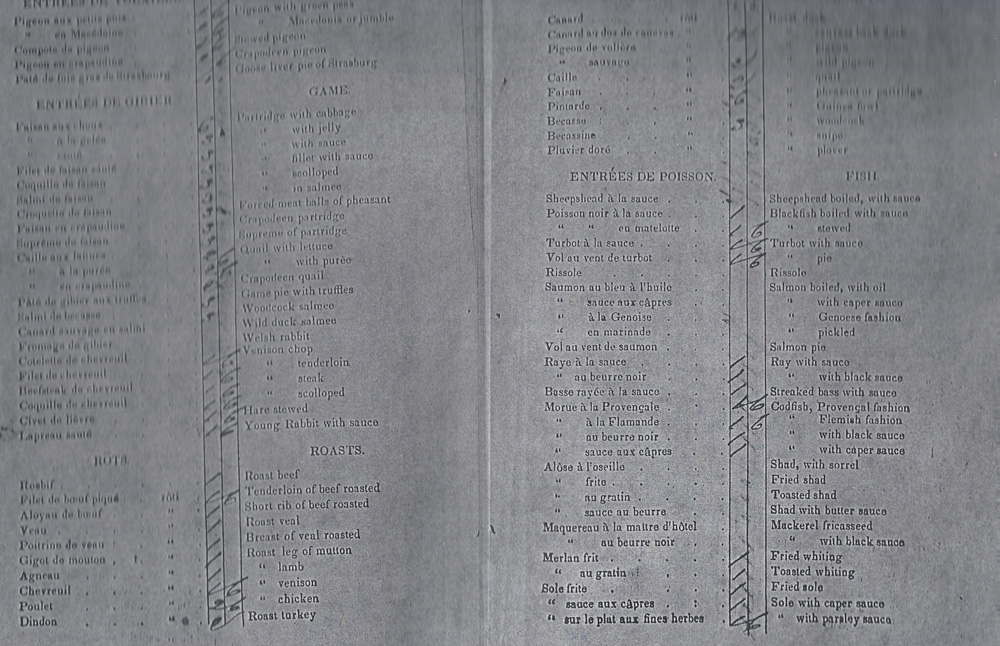 ENTRÉES DE
Pigeon aux petits pois
" en Macédoine
Compote de pigeon
Pigeon en crapaudine
Paté de foie gras de Strasbourg
ENTRÉES DE GIBIER
Faisan aux choux
" à la gelée
" sauté
Filet de faisan sauté
Coquille de faisan
Salmi de faisan
Croquette de faisan
Faisan en crapaudine
Suprême de faisan
Caille aux laitues
" à la purée
" en crapaudine
Pâté de gibier aux truffes
Salmi de becasse
Canard sauvage en salmi
Fromage de gibier
Cotelette de chevreuil
Filet de chevreuil
Beefsteak de chevreuil
Coquille de chevreuil
Civet de lièvre
Lapreau sauté
ROTS.
Rosbif
Filet de bœuf piqué . rôti
Aloyau de bœuf "
Veau "
Poitrine de veau "
Gigot de mouton "
Agneau "
Chevreuil "
Poulet "
Dindon "
Pigeon with green peas
" Macedonia or jumble
Stewed pigeon
Crapodeen pigeon
Goose liver pie of Strasburg
GAME.
Partridge with cabbage
" with jelly
" with sauce
" fillet with sauce
" scolloped
" in salmee
Forced meat balls of pheasant
Crapodeen partridge
Supreme of partridge
Quail with lettuce
" with purée
Crapodeen quail
Game pie with truffles
Woodcock salmee
Wild duck salmee
Welsh rabbit
Venison chop
" tenderloin
" steak
" scolloped
Hare stewed
Young Rabbit with sauce
ROASTS.
Roast beef
Tenderloin of beef roasted
Short rib of beef roasted
Roast veal
Breast of veal roasted
Roast leg of mutton
" lamb
" venison
" chicken
Roast turkey
Canard . rôti
Canard au dos de canevas . "
Pigeon de volière . "
" sauvage . "
Caille . "
Faisan . "
Pintarde . "
Becasse . "
Becassine . "
Pluvier doré . "
ENTRÉES DE POISSON.
Sheepshead à la sauce .
Poisson noir à la sauce .
" " en matelotte .
Turbot à la sauce .
Vol au vent de turbot .
Rissole .
Saumon au bleu à l'huile .
" sauce aux câpres .
" à la Genoise .
" en marinade .
Vol au vent de saumon .
Raye à la sauce .
" au beurre noir .
Basse rayée à la sauce .
Morue à la Provençale .
" à la Flamande .
" au beurre noir .
" sauce aux câpres .
Alôse à l'oseille .
" frite .
" au gratin .
" sauce au beurre .
Maquereau à la maitre d'hôtel
" au beurre noir .
Merlan frit .
" au gratin .
Sole frite .
" sauce aux câpres .
" sur le plat aux fines herbes
Roast duck
" canvass back duck
" pigeon
" wild pigeon
" quail
" pheasant or partridge
" Guinea fowl
" woodcock
" snipe
" plover
FISH.
Sheepshead boiled, with sauce
Blackfish boiled with sauce
" stewed
Turbot with sauce
" pie
Rissole
Salmon boiled, with oil
" with caper sauce
" Genoese fashion
" pickled
Salmon pie
Ray with sauce
" with black sauce
Streaked bass with sauce
Codfish, Provençal fashion
" Flemish fashion
" with black sauce
" with caper sauce
Shad, with sorrel
Fried shad
Toasted shad
Shad with butter sauce
Mackerel fricasseed
" with black sauce
Fried whiting
Toasted whiting
Fried sole
Sole with caper sauce
" with parsley sauce